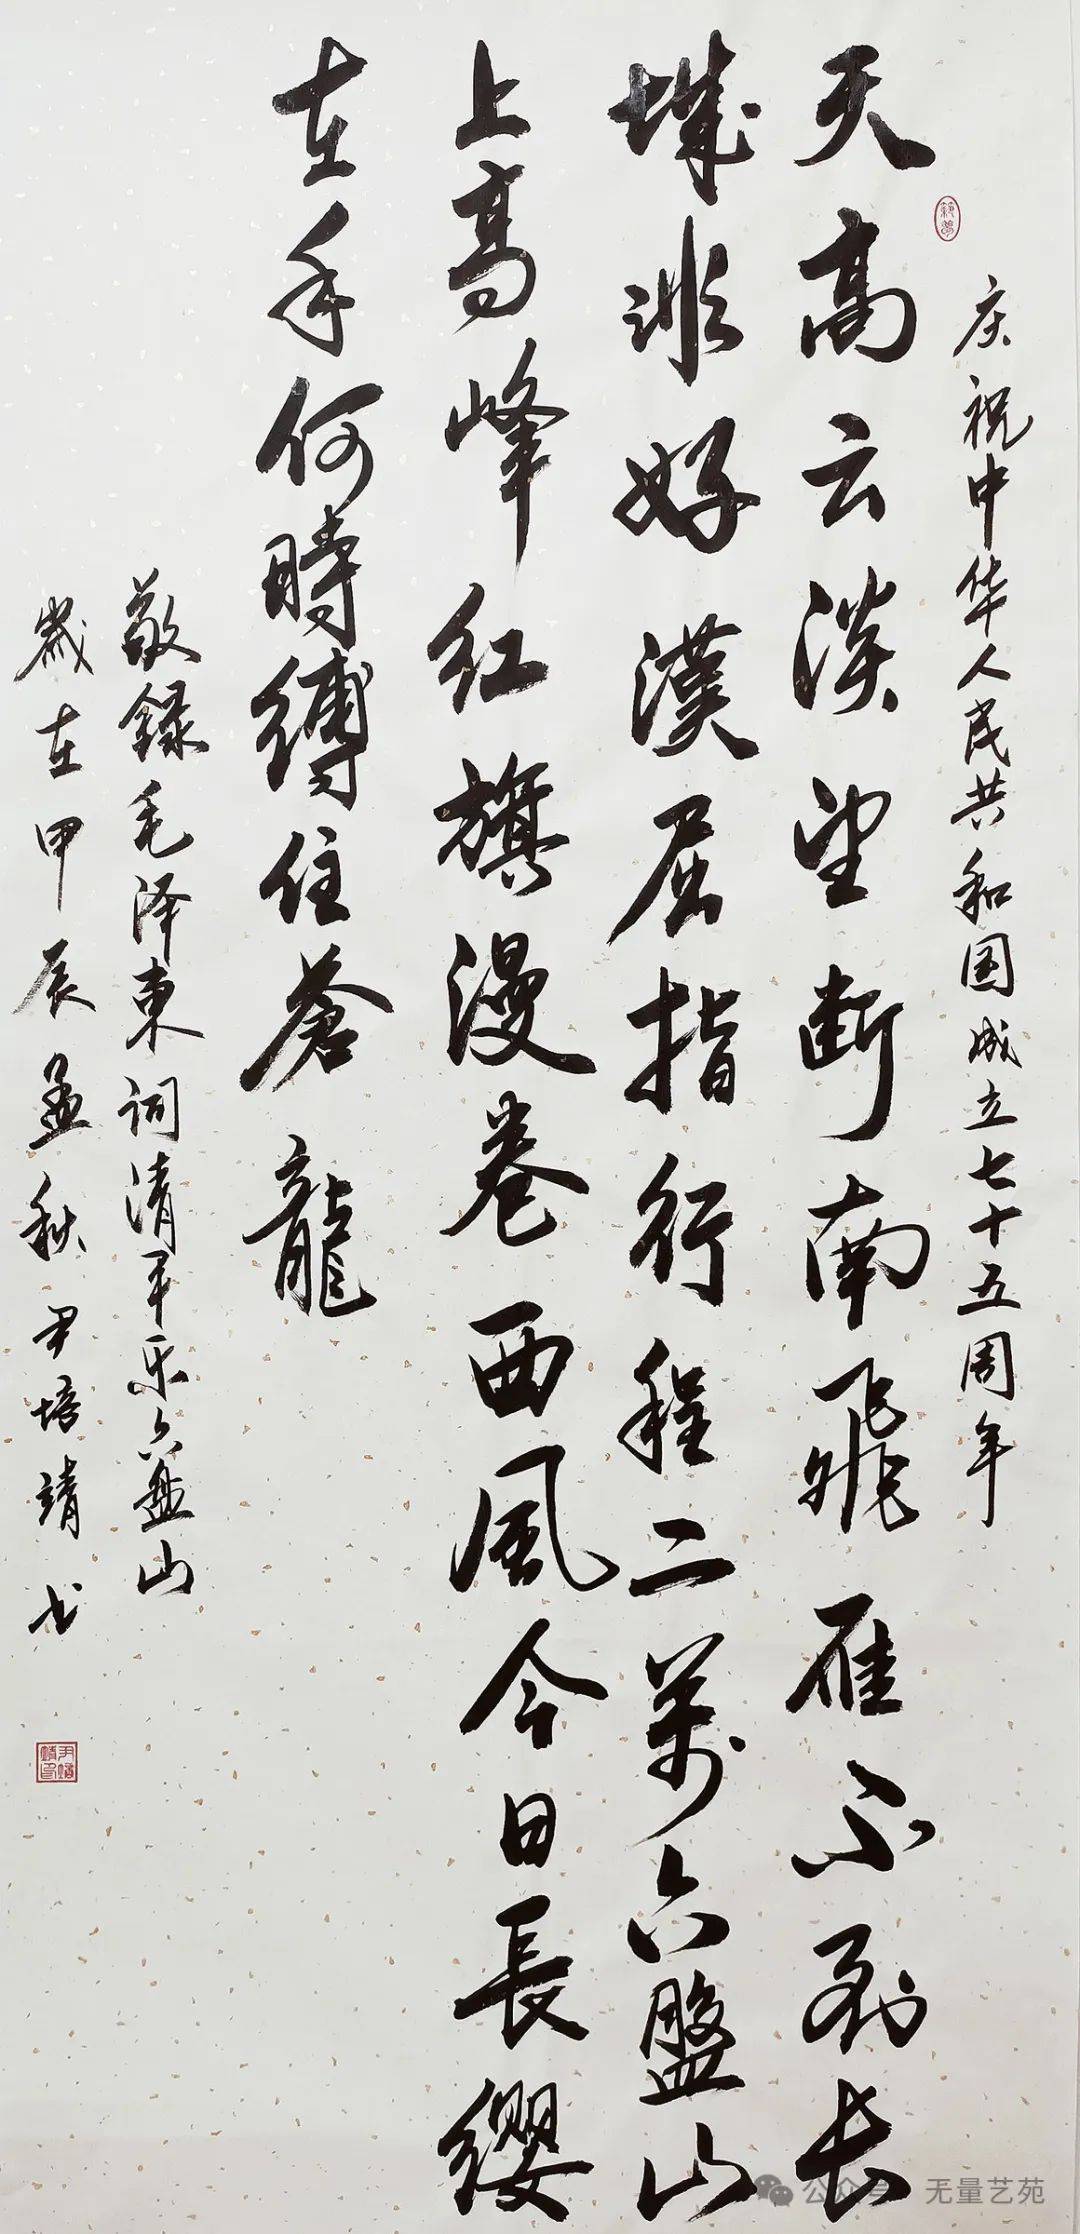 庆祝中华人民共和国成立七十五周年
天高云淡望断南飛雁不到长
城非好漢屈指行程二萬六盤山
上高峰红旗漫卷西风今日長缨
在手何時缚住蒼龍
敬録毛泽東词清平乐六盘山
歲在甲辰孟秋尹培靖书
公众号 无量艺苑